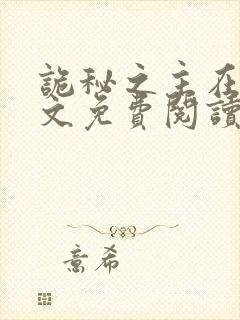 詭秘之主在
文免費閱讀
意希